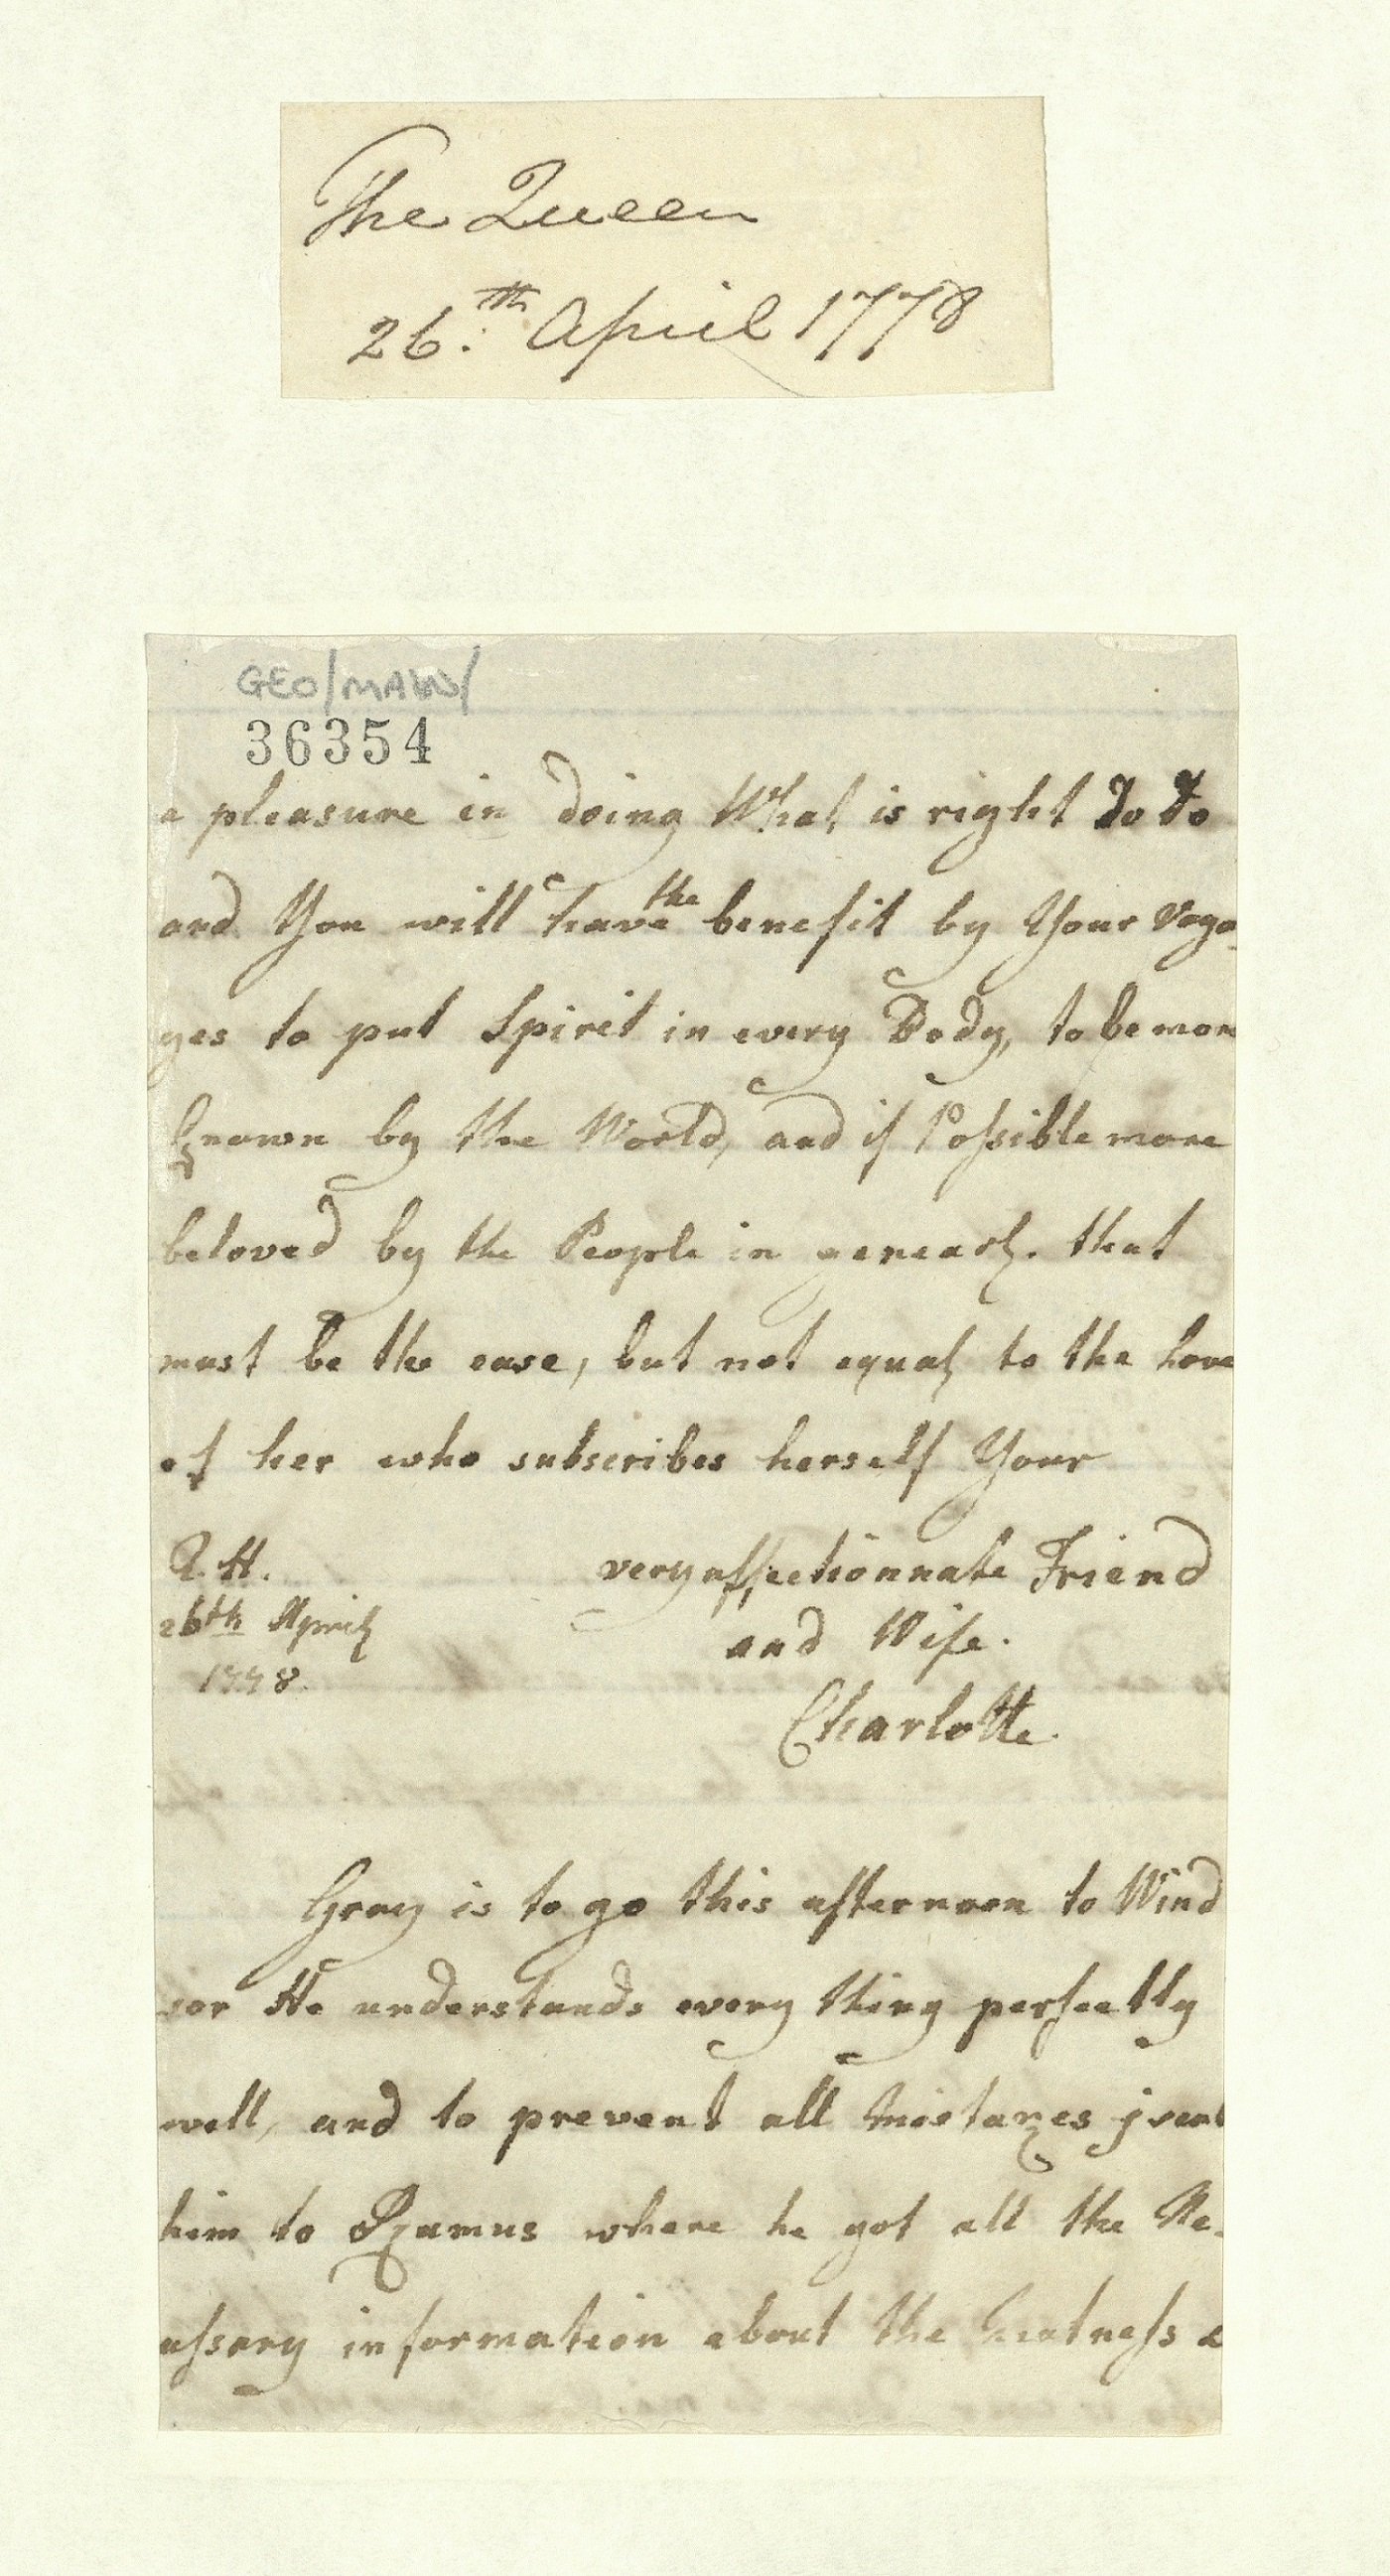 The Queen
26:th April 1778
GEO/MAIN/
36354
a pleasure in doing What is right to do
and You will have the benefit by Your voya-
ges to put Spirit in every Body, to be more
known by the World, and if Possible more
beloved by the People in general. that
must be the case, but not equal to the Love
of her who subscribes herself Your
very affectionnate Friend
and Wife.
Charlotte.
Q. H.
26th April
1778.
Grey is to go this afternoon to Wind
sor He understands every thing perfectly
well, and to prevent all mistakes j sent
him to Ramus where he got all the Ne-
cessary information about the